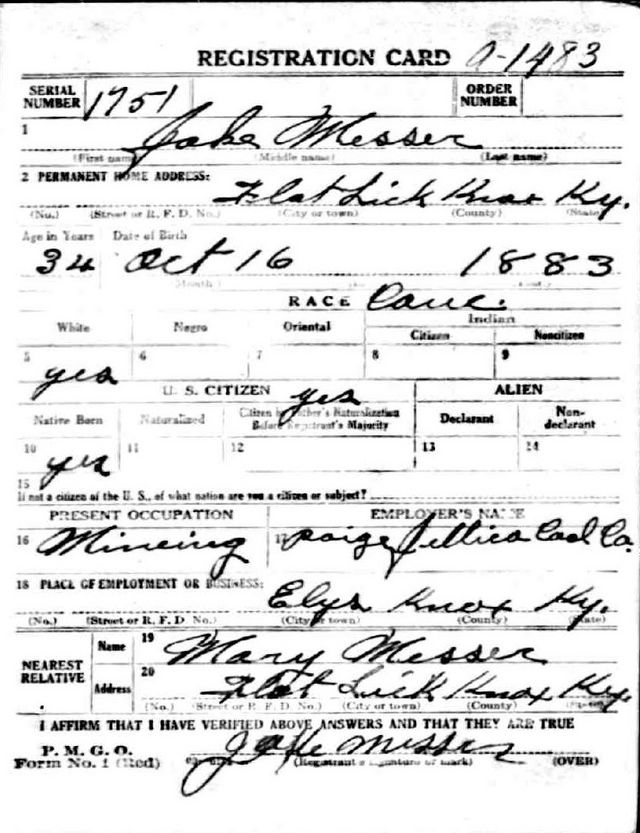 REGISTRATION CARD A-1483
SERIAL NUMBER 1751 ORDER NUMBER
1 Jake Messer
(First name) (Middle name) (Last name)
2 PERMANENT HOME ADDRESS:
Flat Lick Knox Ky.
(No.) (Street or R. F. D. No.) (City or town) (County) (State)
Age in Years Date of Birth
34 Oct 16 1883
(Month)
RACE Cauc.
White Negro Oriental Indian
Citizen Noncitizen
5 yes 6 7 8 9
U. S. CITIZEN yes ALIEN
Native Born Naturalized Citizen by Father's Naturalization Before Registrant's Majority Declarant Non-declarant
10 yes 11 12 13 14
15
If not a citizen of the U. S., of what nation are you a citizen or subject?
PRESENT OCCUPATION EMPLOYER'S NAME
16 Mineing 17 Paige Jellico Coal Co.
18 PLACE OF EMPLOYMENT OR BUSINESS:
Elys Knox Ky.
(No.) (Street or R. F. D. No.) (City or town) (County) (State)
NEAREST RELATIVE Name 19 Mary Messer
Address 20 Flat Lick Knox Ky
(No.) (Street or R. F. D. No.) (City or town) (County) (State)
I AFFIRM THAT I HAVE VERIFIED ABOVE ANSWERS AND THAT THEY ARE TRUE
P. M. G. O.
Form No. 1 (Red) Jake Messer
(Registrant's signature or mark) (OVER)